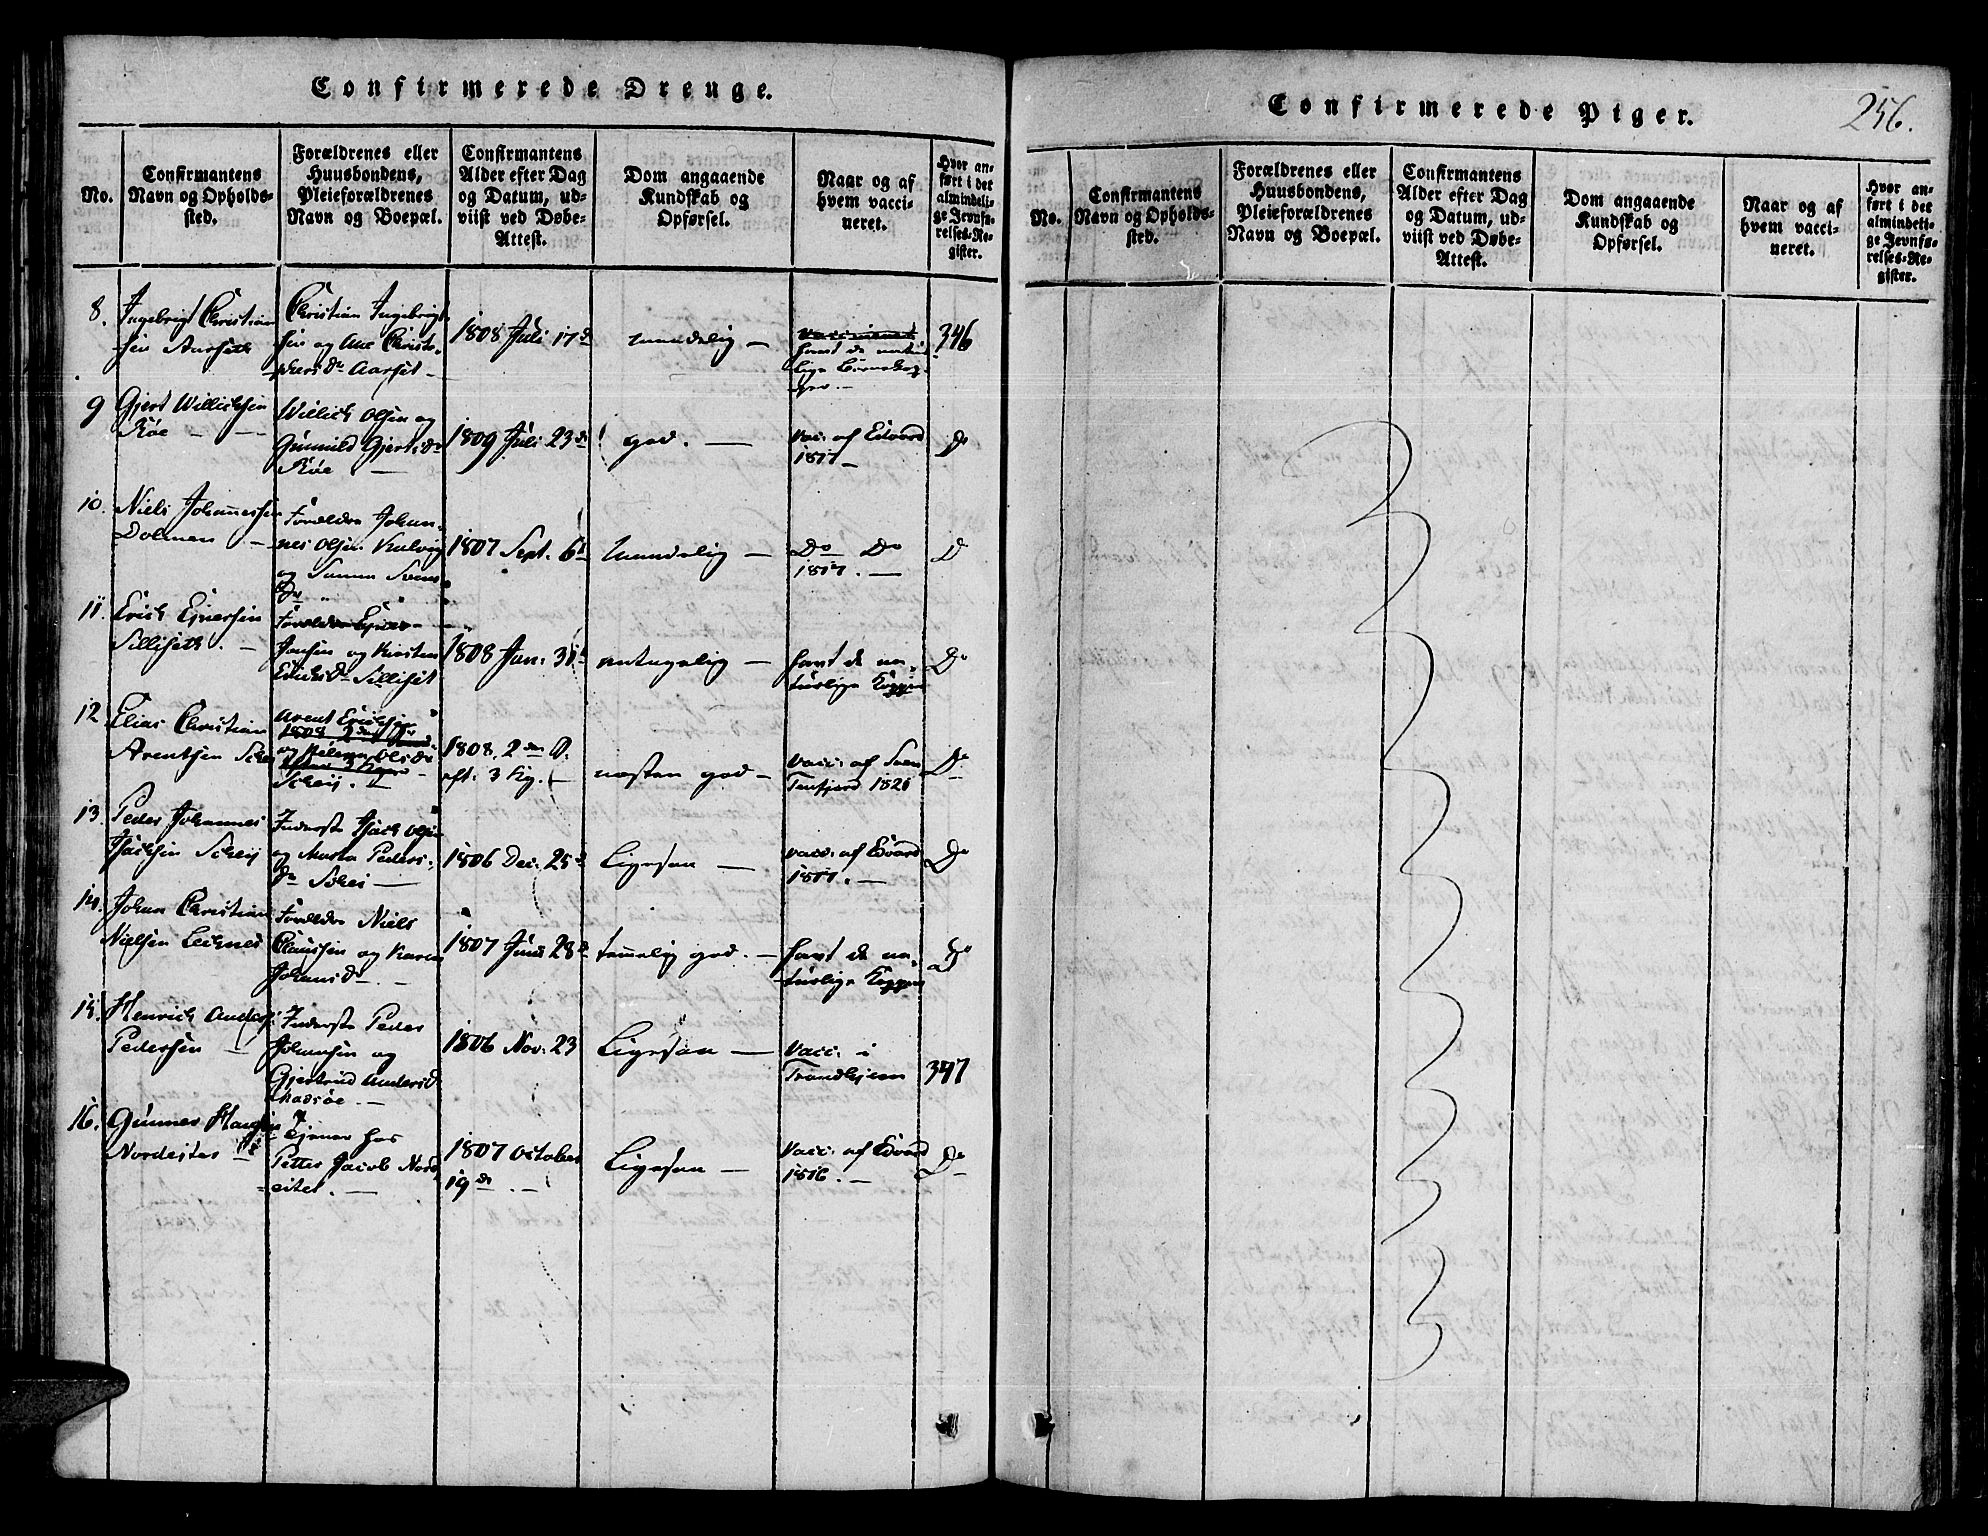 Confirmerede Drenge.
No.
Confirmantens
Navn og Opholds-
sted.
Forældrenes eller
Huusbondens,
Pleieforældrenes
Navn og Boepæl.
Confirmantens
Alder efter Dag
og Datum, ud-
viist ved Døbe-
Attest.
Dom angaaende
Kundskab og
Opførsel.
Naar og af
hvem vacci-
neret.
Hvor an-
ført i det
almindeli-
ge Jevnfø-
relses-Re-
gister.
8.
Ingebrigt Christian
sen Aarseth
Christian Ingebrigt
sen og Ane Christo-
phersdr Aarset
1808 Juli 17d
maadelig
havt de natur
lige
346
9
Gjert Willichsen
Røe
Willich Olsen og
Gunnild Gjertsdr
Røe
1809 Juli 23d
god.
Vacc. af Edvard
1817
Do
10.
Niels Johannessen
Dolmen
Forældre Johan-
nes Olsen
og Svens
dr
1807 Sept. 6d
Maadelig
Do Do
1817.
D
11.
Erich Ejnersen
Silliseth.
Forældre Ejner
Jensen og Kirsten
Erichsdr Silliset
1808 Jan: 31d
antagelig
havt de na-
turlige Kopper
Do
12
Elias Christian
Arentsen Schei
Arent Erichsen
og Olsdr
Scheij.
1808. 2den D.
eft: 3 Kg.
næsten god
Vacc: af Sven
Tenfjord 1821
Do
13.
Peder Johannes
Isachsen Scheij
Inderste Isach Olsen
og Marta Peders-
dr Schei
1806 Dec: 25d
Ligesaa
vacc: af Edvard
1817.
Do
14.
Johan Christian
Nielsen Leernes
Forældre Niels
Claussen og Karen
Johansdr
1807 Juni 28d
temelig god.
havt de na-
turlige Kopper
Do
15.
Henrich Anders
Pedersen
Inderste Peder
Johansen og
Gjertrud Andersd
1806 Nov: 23
Ligesaa
Vacc: i
Trondhjem
347
16.
Gunner Hansen
Nordester
Tjener hos
Petter Jacob Nord
eitet.
1807 October
19de
Ligesaa
Vacc: af Edvard
1816.
Do
Confirmerede Piger.
256.
No.
Confirmantens
Navn og Opholds-
sted.
Forældrenes eller
Huusbondens,
Pleieforældrenes
Navn og Boepæl.
Confirmantens
Alder efter Dag
og Datum, ud-
viist ved Døbe-
Attest.
Dom angaaende
Kundskab og
Opførsel.
Naar og af
hvem vacci-
neret.
Hvor an-
ført i det
almindeli-
ge Jevnfø-
relses-Re-
gister.